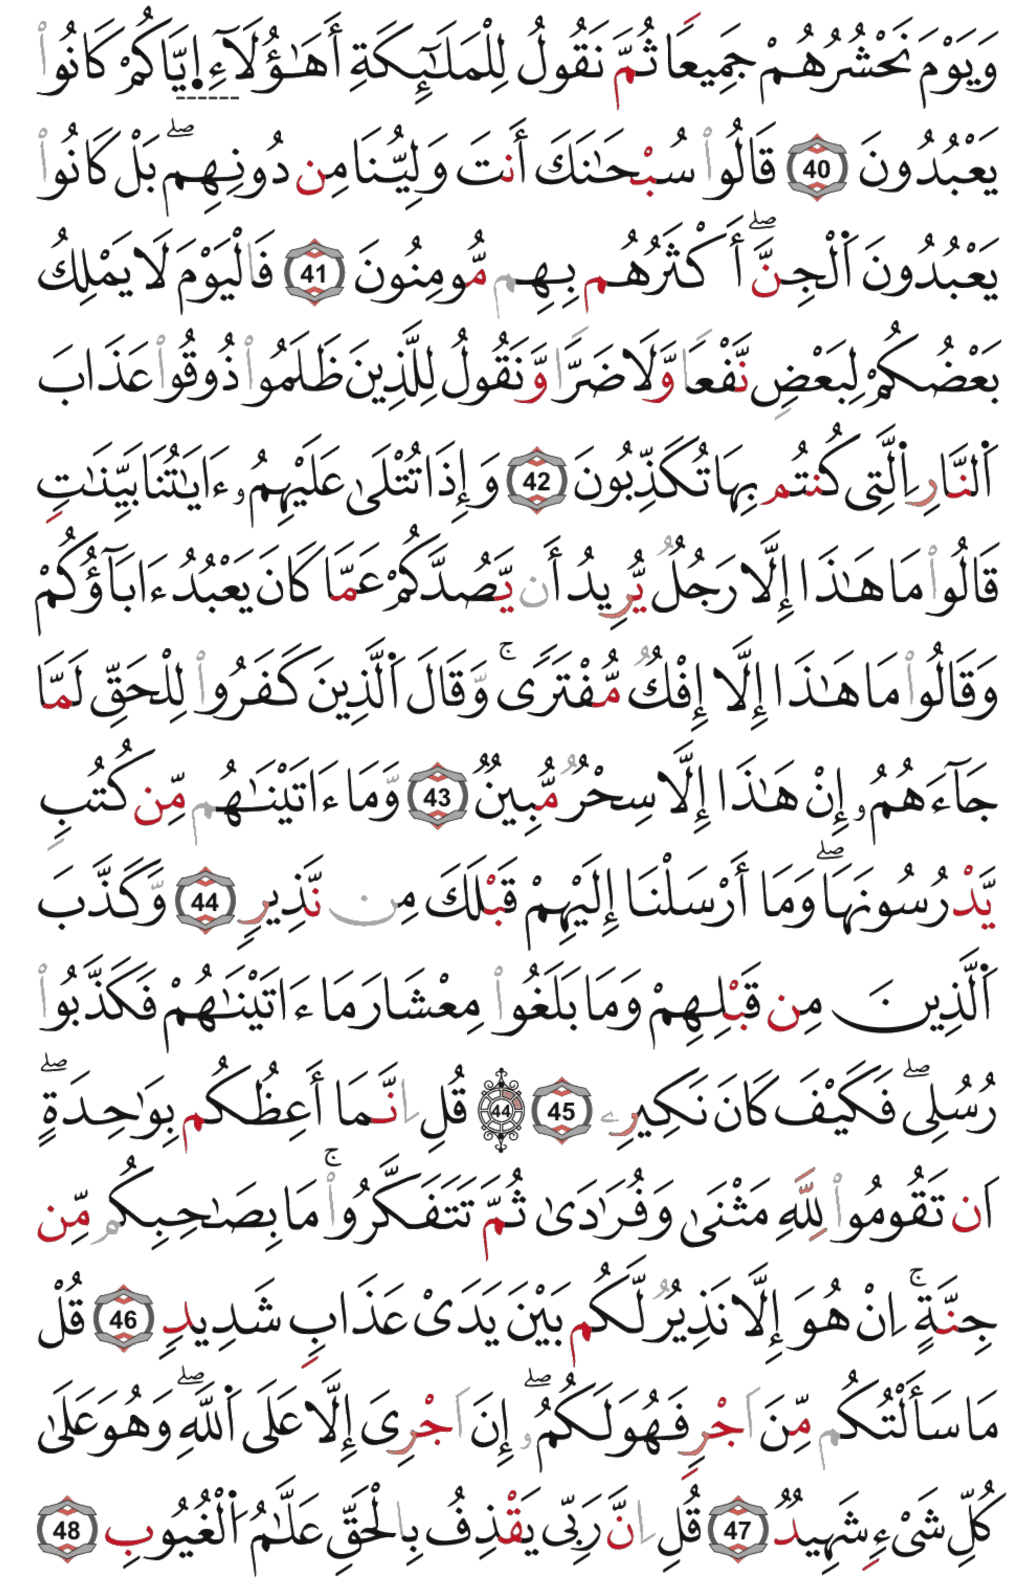 وَيَوْمَ نَحْشُرُهُمْ جَمِيعًا ثُمَّ نَقُولُ لِلْمَلَٰٓئِكَةِ أَهَٰٓؤُلَآءِ اِ۪يَّاكُمْ كَانُوا۟
يَعْبُدُونَ 40 قَالُوا۟ سُبْحَٰنَكَ أَنتَ وَلِيُّنَا مِن دُونِهِمۖ بَلْ كَانُوا۟
يَعْبُدُونَ اَ۬لْجِنَّۖ أَكْثَرُهُم بِهِم مُّومِنُونَ 41 فَالْيَوْمَ لَا يَمْلِكُ
بَعْضُكُمْ لِبَعْضٍ نَّفْعًا وَّلَا ضَرًّا وَّنَقُولُ لِلَّذِينَ ظَلَمُوا۟ ذُوقُوا۟ عَذَابَ
اَ۬لنَّارِ اِ۬لَّتِى كُنتُم بِهَا تُكَذِّبُونَ 42 وَإِذَا تُتْلَىٰ عَلَيْهِمُۥ ءَايَٰتُنَا بَيِّنَٰتٍ
قَالُوا۟ مَا هَٰذَا إِلَّا رَجُلٌ يُّرِيدُ أَن يَّصُدَّكُمْ عَمَّا كَانَ يَعْبُدُ ءَابَآؤُكُمْ
وَقَالُوا۟ مَا هَٰذَا إِلَّا إِفْكٌ مُّفْتَرًىۚ وَّقَالَ اَ۬لَّذِينَ كَفَرُوا۟ لِلْحَقِّ لَمَّا
جَآءَهُمُۥ إِنْ هَٰذَا إِلَّا سِحْرٌ مُّبِينٌ 43 وَّمَا ءَاتَيْنَٰهُم مِّن كُتُبٍ
يَّدْرُسُونَهَاۖ وَمَا أَرْسَلْنَا إِلَيْهِمْ قَبْلَكَ مِن نَّذِيرٍ 44 وَّكَذَّبَ
اَ۬لَّذِينَ مِن قَبْلِهِمْ وَمَا بَلَغُوا۟ مِعْشَارَ مَا ءَاتَيْنَٰهُمْ فَكَذَّبُوا۟
رُسُلِىۖ فَكَيْفَ كَانَ نَكِيرِۦ 45 44 قُلِ اِنَّمَا أَعِظُكُم بِوَٰحِدَةٍۖ
اَن تَقُومُوا۟ لِلَّهِ مَثْنَىٰ وَفُرَٰدَىٰ ثُمَّ تَتَفَكَّرُوا۟ۚ مَا بِصَٰحِبِكُم مِّن
جِنَّةٍۚ اِنْ هُوَ إِلَّا نَذِيرٌ لَّكُم بَيْنَ يَدَىْ عَذَابٍ شَدِيدٍ 46 قُلْ
مَا سَأَلْتُكُم مِّنَ اَجْرٍ فَهُوَ لَكُمُۥۖ إِنَ اَجْرِىَ إِلَّا عَلَى اَ۬للَّهِۖ وَهُوَ عَلَىٰ
كُلِّ شَىْءٍ شَهِيدٌ 47 قُلِ اِنَّ رَبِّى يَقْذِفُ بِالْحَقِّ عَلَّٰمُ اُ۬لْغُيُوبِ 48